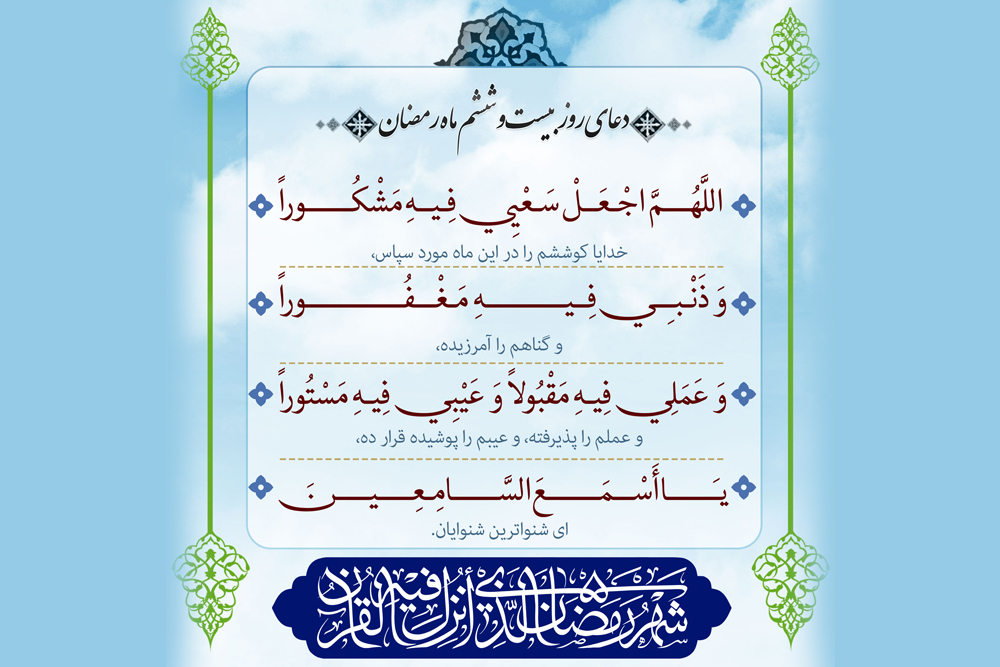 دعای روز بیست و ششم ماه رمضان
اللَّهُمَّ اجْعَلْ سَعْیِي فِیهِ مَشْکُوراً
خدایا کوششم را در این ماه مورد سپاس،
وَ ذَنْبِي فِیهِ مَغْفُوراً
و گناهم را آمرزیده،
وَ عَمَلِي فِیهِ مَقْبُولاً وَ عَیْبِي فِیهِ مَسْتُوراً
و عملم را پذیرفته، و عیبم را پوشیده قرار ده،
یَا أَسْمَعَ السَّامِعِینَ
ای شنواترین شنوایان.
شَهْرُ رَمَضَانَ الَّذِي أُنْزِلَ فِيهِ الْقُرْآنُ